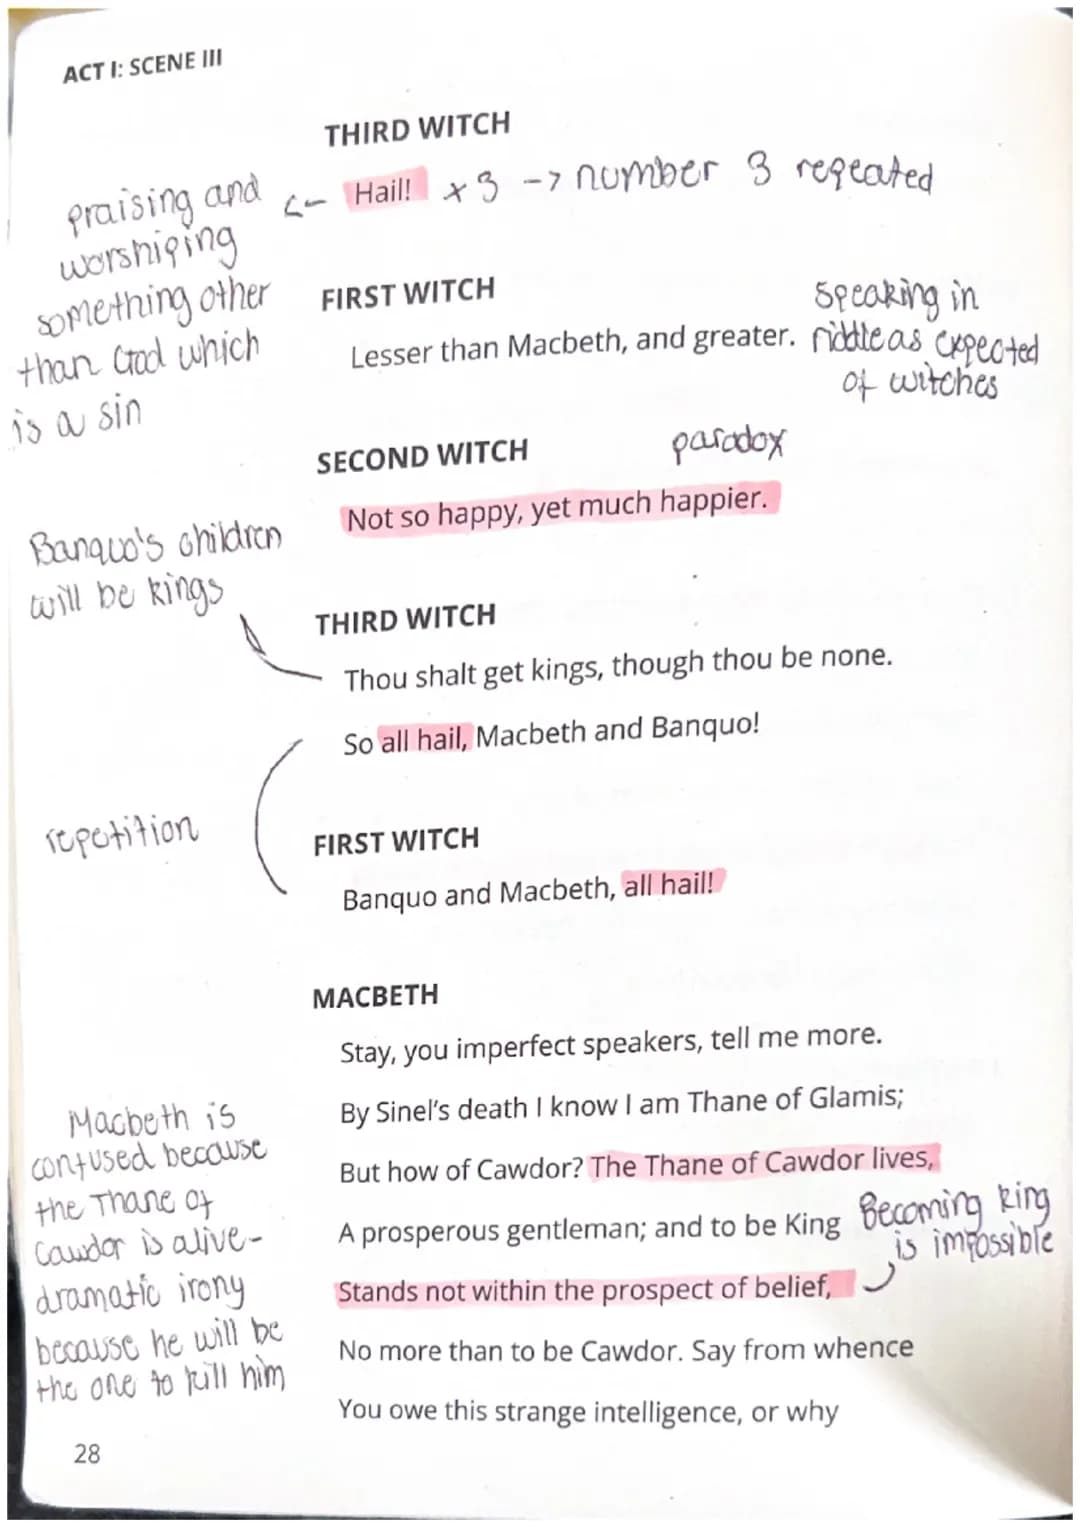 ACT I: SCENE III
THIRD WITCH
Hail! x 3 -> number 3 repeated
praising and <-
worshiping
something other
than God which
is a sin
FIRST WITCH
Lesser than Macbeth, and greater.
Speaking in
riddle as expected
of witches
SECOND WITCH
paradox
Not so happy, yet much happier.
Banquo's children
will be kings
THIRD WITCH
Thou shalt get kings, though thou be none.
So all hail, Macbeth and Banquo!
repetition
FIRST WITCH
Banquo and Macbeth, all hail!
MACBETH
Stay, you imperfect speakers, tell me more.
By Sinel's death I know I am Thane of Glamis;
But how of Cawdor? The Thane of Cawdor lives,
A prosperous gentleman; and to be King
Stands not within the prospect of belief,
No more than to be Cawdor. Say from whence
You owe this strange intelligence, or why
Becoming king
is impossible
Macbeth is
confused because
the Thane of
Cawdor is alive-
dramatic irony
because he will be
the one to kill him
28